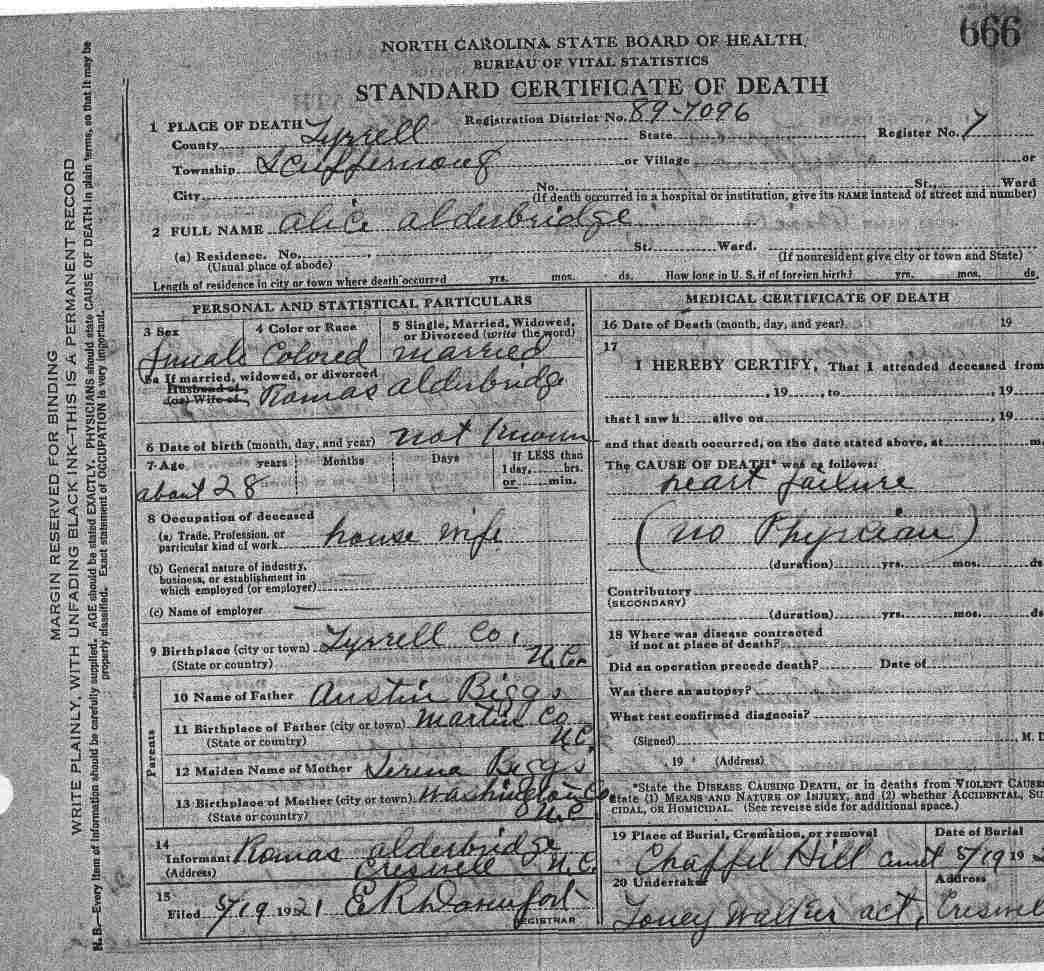 666
NORTH CAROLINA STATE BOARD OF HEALTH
BUREAU OF VITAL STATISTICS
STANDARD CERTIFICATE OF DEATH
1 PLACE OF DEATH Registration District No. 89-7096
County Tyrrell State Register No. 7
Township Scuppernong or Village or
City No. St., Ward
(If death occurred in a hospital or institution, give its NAME instead of street and number)
2 FULL NAME alice alderbridge
(a) Residence. No. St. Ward.
(Usual place of abode) (If nonresident give city or town and State)
Length of residence in city or town where death occurred yrs. mos. ds. How long in U. S. if of foreign birth? yrs. mos. ds.
PERSONAL AND STATISTICAL PARTICULARS
3 Sex 4 Color or Race 5 Single, Married, Widowed, or Divorced (write the word)
female Colored married
5a If married, widowed, or divorced
Husband of
(or) Wife of Romas alderbridge
6 Date of birth (month, day, and year) not known
7 Age years Months Days If LESS than
1 day, hrs.
or min.
about 28
8 Occupation of deceased
(a) Trade, Profession, or
particular kind of work house wife
(b) General nature of industry,
business, or establishment in
which employed (or employer)
(c) Name of employer —
9 Birthplace (city or town) Tyrrell Co,
(State or country) N.C.
Parents
10 Name of Father Austin Biggs
11 Birthplace of Father (city or town) Martin Co
(State or country) N.C.
12 Maiden Name of Mother Serena Biggs
13 Birthplace of Mother (city or town) Washington Co
(State or country) N.C
14
Informant Romas alderbridge
(Address) Creswell N.C.
15
Filed 5/19 1921 E R Davenport
REGISTRAR
MEDICAL CERTIFICATE OF DEATH
16 Date of Death (month, day, and year) 19
17
I HEREBY CERTIFY, That I attended deceased from
, 19 , to , 19
that I saw h alive on , 19
and that death occurred, on the date stated above, at m.
The CAUSE OF DEATH* was as follows:
heart failure
(no Physician)
(duration) yrs. mos. ds
Contributory
(SECONDARY)
(duration) yrs. mos. ds
18 Where was disease contracted
if not at place of death?
Did an operation precede death? Date of
Was there an autopsy?
What test confirmed diagnosis?
(Signed) M. D
, 19 (Address)
*State the DISEASE CAUSING DEATH, or in deaths from VIOLENT CAUSES
state (1) MEANS AND NATURE OF INJURY, and (2) whether ACCIDENTAL, SUI
CIDAL, OR HOMICIDAL. (See reverse side for additional space.)
19 Place of Burial, Cremation, or removal Date of Burial
Chappel Hill 5/19 19 2
20 Undertaker Address
Toney Walker act, Creswel
MARGIN RESERVED FOR BINDING
WRITE PLAINLY, WITH UNFADING BLACK INK—THIS IS A PERMANENT RECORD
N. B.—Every item of information should be carefully supplied. AGE should be stated EXACTLY. PHYSICIANS should state CAUSE OF DEATH in plain terms, so that it may be
properly classified. Exact statement of OCCUPATION is very important.